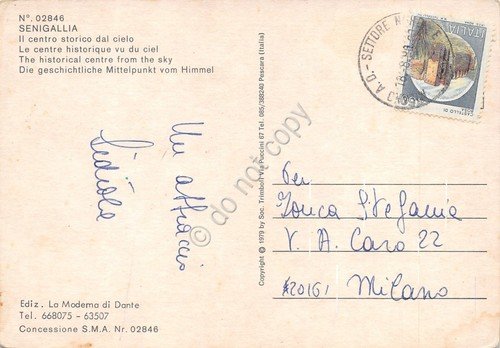 N°. 02846
SENIGALLIA
Il centro storico dal cielo
Le centre historique vu du ciel
The historical centre from the sky
Die geschichtliche Mittelpunkt vom Himmel
Un abbraccio
Copyright © 1979 by Soc. Trimboli Via Puccini 67 Tel. 085/388240 Pescara (Italia)
C.A.D. - SETTORE
ITALIA
CASTELLO DI
Per
Stefania
V. A. Caro 22
(20161
Milano
Ediz. La Moderna di Dante
Tel. 668075 - 63507
Concessione S.M.A. Nr. 02846
© do not copy